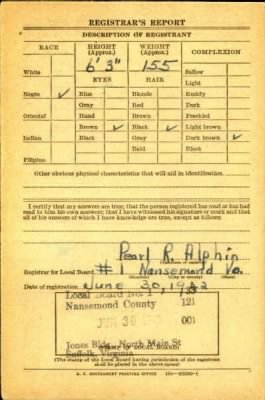 REGISTRAR'S REPORT
DESCRIPTION OF REGISTRANT
RACE HEIGHT (Approx.) WEIGHT (Approx.) COMPLEXION
White 6' 3" 155 Sallow
EYES HAIR Light
Negro ✓ Blue Blonde Ruddy
Gray Red Dark
Oriental Hazel Brown Freckled
Brown ✓ Black ✓ Light brown
Indian Black Gray Dark brown ✓
Bald Black
Filipino
Other obvious physical characteristics that will aid in identification.
I certify that my answers are true; that the person registered has read or has had
read to him his own answers; that I have witnessed his signature or mark and that
all of his answers of which I have knowledge are true, except as follows:
Pearl R. Alphin
Registrar for Local Board # 1 Nansemond Va.
Date of registration June 30, 1942
Local Board No. 1
Nansemond County 121
JUN 30 001
Jones Bldg. North Main St
Suffolk, Virginia
(STAMP OF LOCAL BOARD)
(The stamp of the Local Board having jurisdiction of the registrant
shall be placed in the above space)
U. S. GOVERNMENT PRINTING OFFICE